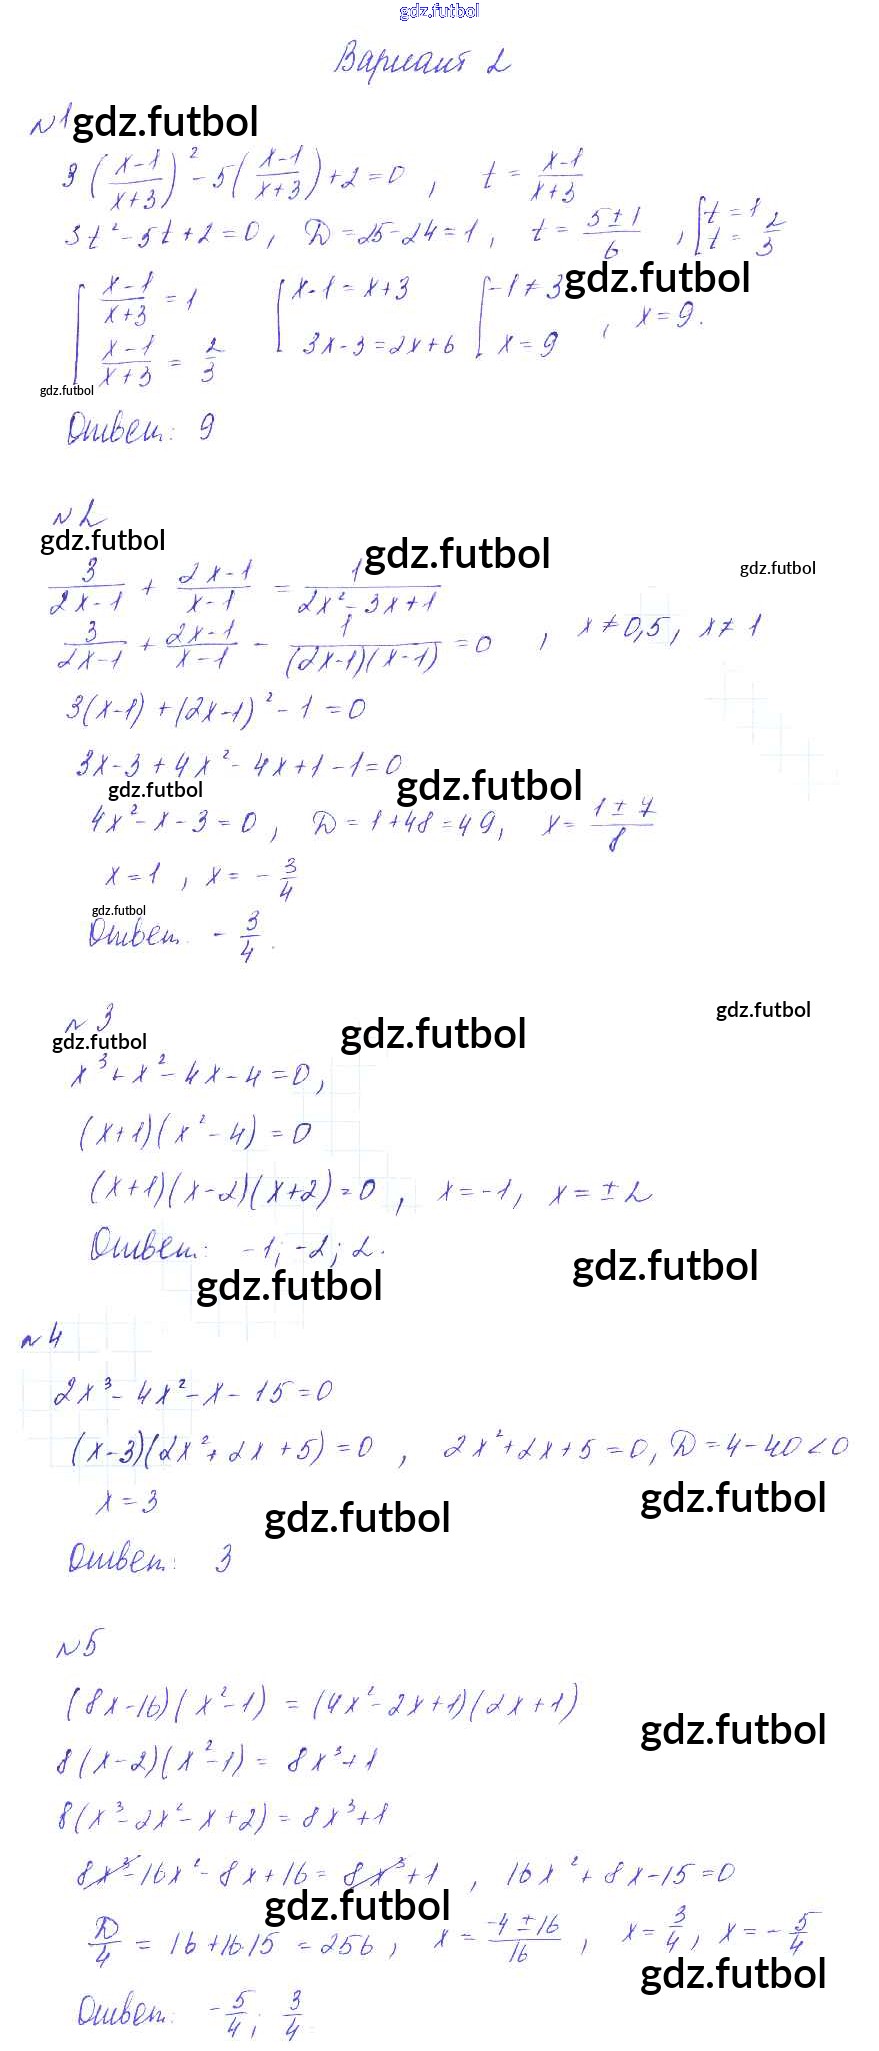 gdz.futbol
Вариант 2
№1 gdz.futbol
3((x-1)/(x+3))² - 5((x-1)/(x+3)) + 2 = 0, t = (x-1)/(x+3)
3t² - 5t + 2 = 0, D = 25 - 24 = 1, t = (5±1)/6, [t = 1 t = 2/3
gdz.futbol
[(x-1)/(x+3) = 1 [x-1 = x+3 [-1 ≠ 3
(x-1)/(x+3) = 2/3 3x-3 = 2x+6 x = 9, x = 9.
gdz.futbol
Ответ: 9
№2
gdz.futbol gdz.futbol gdz.futbol
3/(2x-1) + (2x-1)/(x-1) = 1/(2x²-3x+1)
3/(2x-1) + (2x-1)/(x-1) - 1/((2x-1)(x-1)) = 0, x ≠ 0,5, x ≠ 1
3(x-1) + (2x-1)² - 1 = 0
3x - 3 + 4x² - 4x + 1 - 1 = 0
gdz.futbol gdz.futbol
4x² - x - 3 = 0, D = 1 + 48 = 49, x = (1±7)/8
x = 1, x = -3/4
gdz.futbol
Ответ. -3/4.
№3
gdz.futbol gdz.futbol gdz.futbol
x³ + x² - 4x - 4 = 0,
(x+1)(x²-4) = 0
(x+1)(x-2)(x+2) = 0, x = -1, x = ±2
Ответ: -1; -2; 2.
gdz.futbol gdz.futbol
№4
2x³ - 4x² - x - 15 = 0
(x-3)(2x²+2x+5) = 0, 2x²+2x+5 = 0, D = 4-40 < 0
x = 3
gdz.futbol gdz.futbol
Ответ: 3
№5
(8x-16)(x²-1) = (4x²-2x+1)(2x+1)
gdz.futbol
8(x-2)(x²-1) = 8x³+1
8(x³-2x²-x+2) = 8x³+1
8x³-16x²-8x+16 = 8x³+1, 16x²+8x-15 = 0
gdz.futbol
D/4 = 16+16·15 = 256, x = (-4±16)/16, x = 3/4, x = -5/4
gdz.futbol
Ответ: -5/4; 3/4